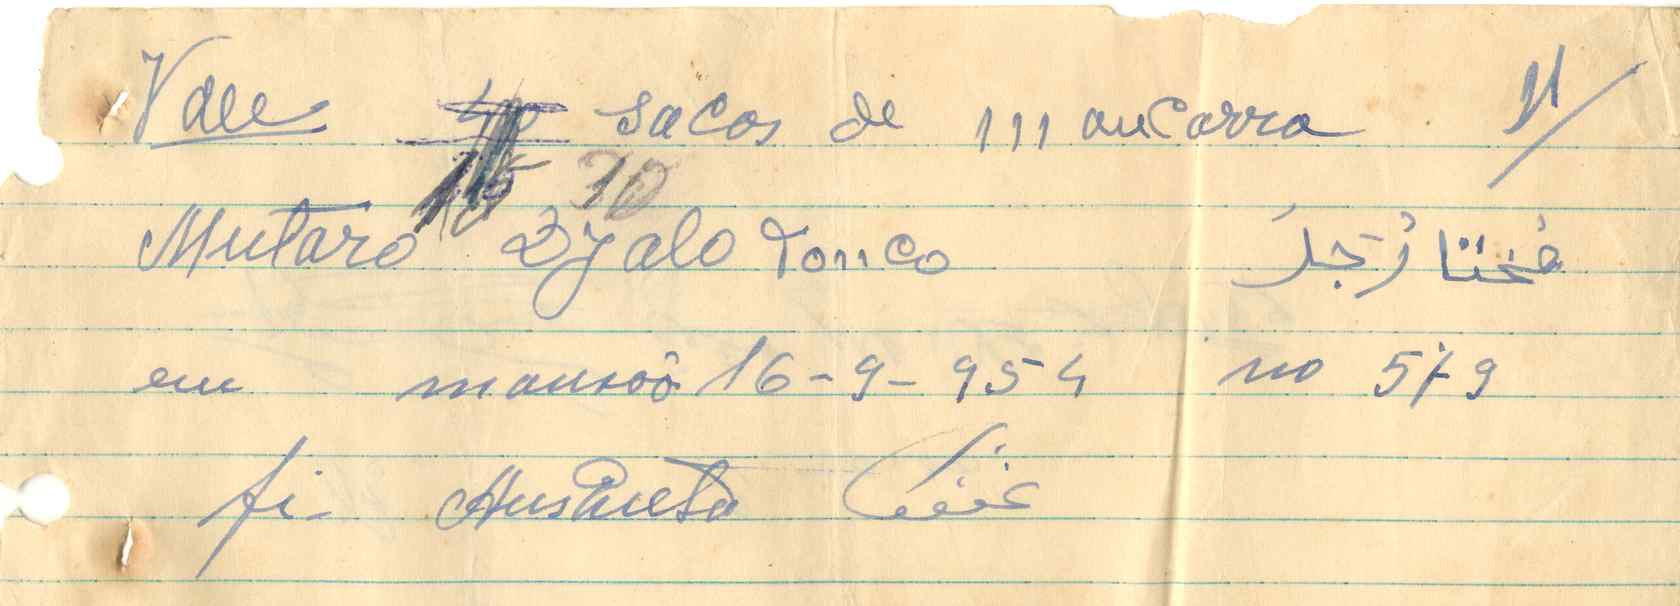 Vale 40 sacos de mancarra
15 10
Mutaro Djalo Tonco مختار جل
em mansoô 16-9-954 no 579
fi-